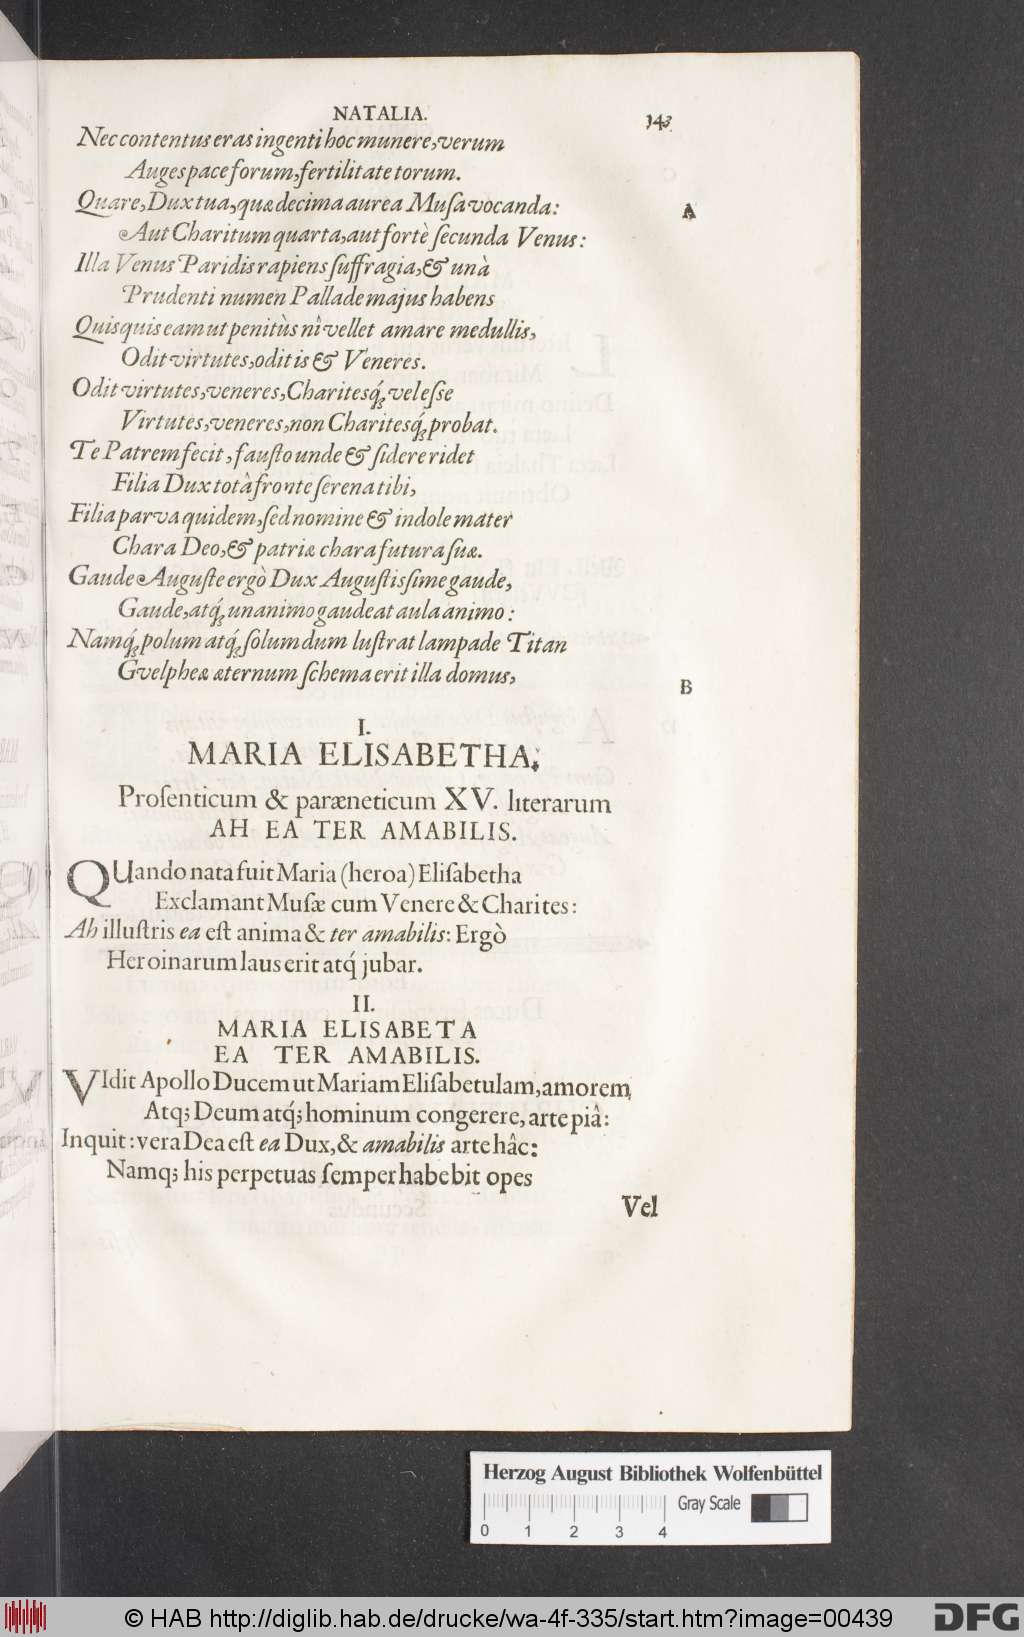 NATALIA. 143
Nec contentus eras ingenti hoc munere, verum
Auges pace forum, fertilitate torum.
Quare, Dux tua, quæ decima aurea Muſa vocanda:
A
Aut Charitum quarta, aut fortè ſecunda Venus:
Illa Venus Paridis rapiens ſuffragia, & unà
Prudenti numen Pallade majus habens
Quisquis eam ut penitùs nî vellet amare medullis,
Odit virtutes, odit is & Veneres.
Odit virtutes, veneres, Charitesq́; vel eſse
Virtutes, veneres, non Charitesq́; probat.
Te Patrem fecit, fauſto unde & ſidere ridet
Filia Dux totâ fronte ſerena tibi,
Filia parva quidem, ſed nomine & indole mater
Chara Deo, & patriæ chara futura ſuæ.
Gaude Auguſte ergò Dux Auguſtisſime gaude,
Gaude, atq́; unanimo gaudeat aula animo:
Namq́; polum atq́; ſolum dum luſtrat lampade Titan
Gvelpheæ æternum ſchema erit illa domus,
B
I.
MARIA ELISABETHA;
Proſenticum & paræneticum XV. literarum
AH EA TER AMABILIS.
QUando nata fuit Maria (heroa) Eliſabetha
Exclamant Muſæ cum Venere & Charites:
Ah illuſtris ea eſt anima & ter amabilis: Ergò
Heroinarum laus erit atq́ jubar.
II.
MARIA ELISABETA
EA TER AMABILIS.
VIdit Apollo Ducem ut Mariam Eliſabetulam, amorem,
Atq; Deum atq́; hominum congerere, arte piâ:
Inquit: vera Dea eſt ea Dux, & amabilis arte hâc:
Namq; his perpetuas ſemper habebit opes
Vel
Herzog August Bibliothek Wolfenbüttel
Gray Scale
0 1 2 3 4
© HAB http://diglib.hab.de/drucke/wa-4f-335/start.htm?image=00439
DFG